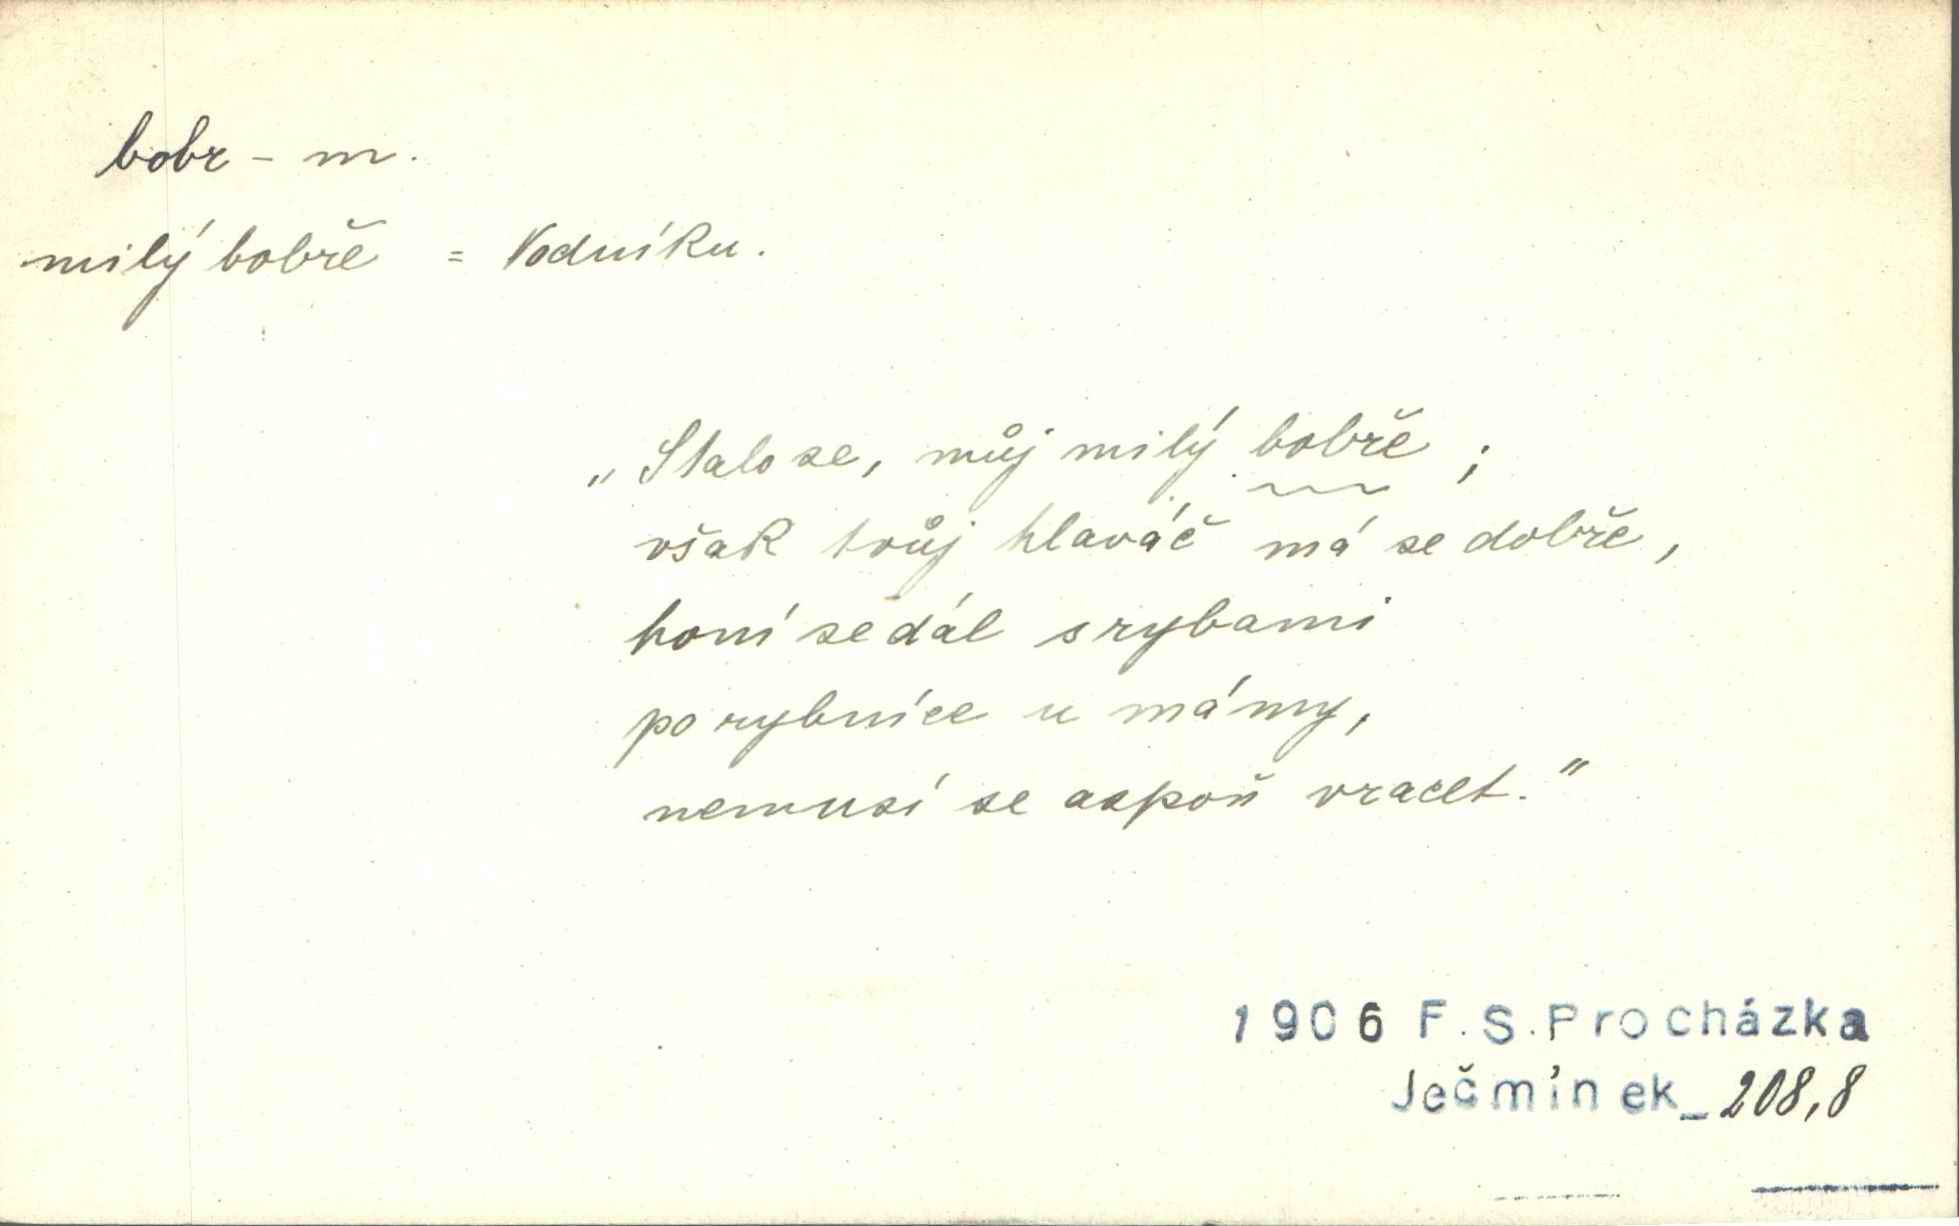 bobr - m.
milý bobře = Vodníku.
„Stalo se, můj milý bobře ;
však tvůj hlaváč má se dobře,
honí se dál s rybami
po rybníce u mámy,
nemusí se aspoň vracet."
1906 F.S.Procházka
Ječmínek_208,8